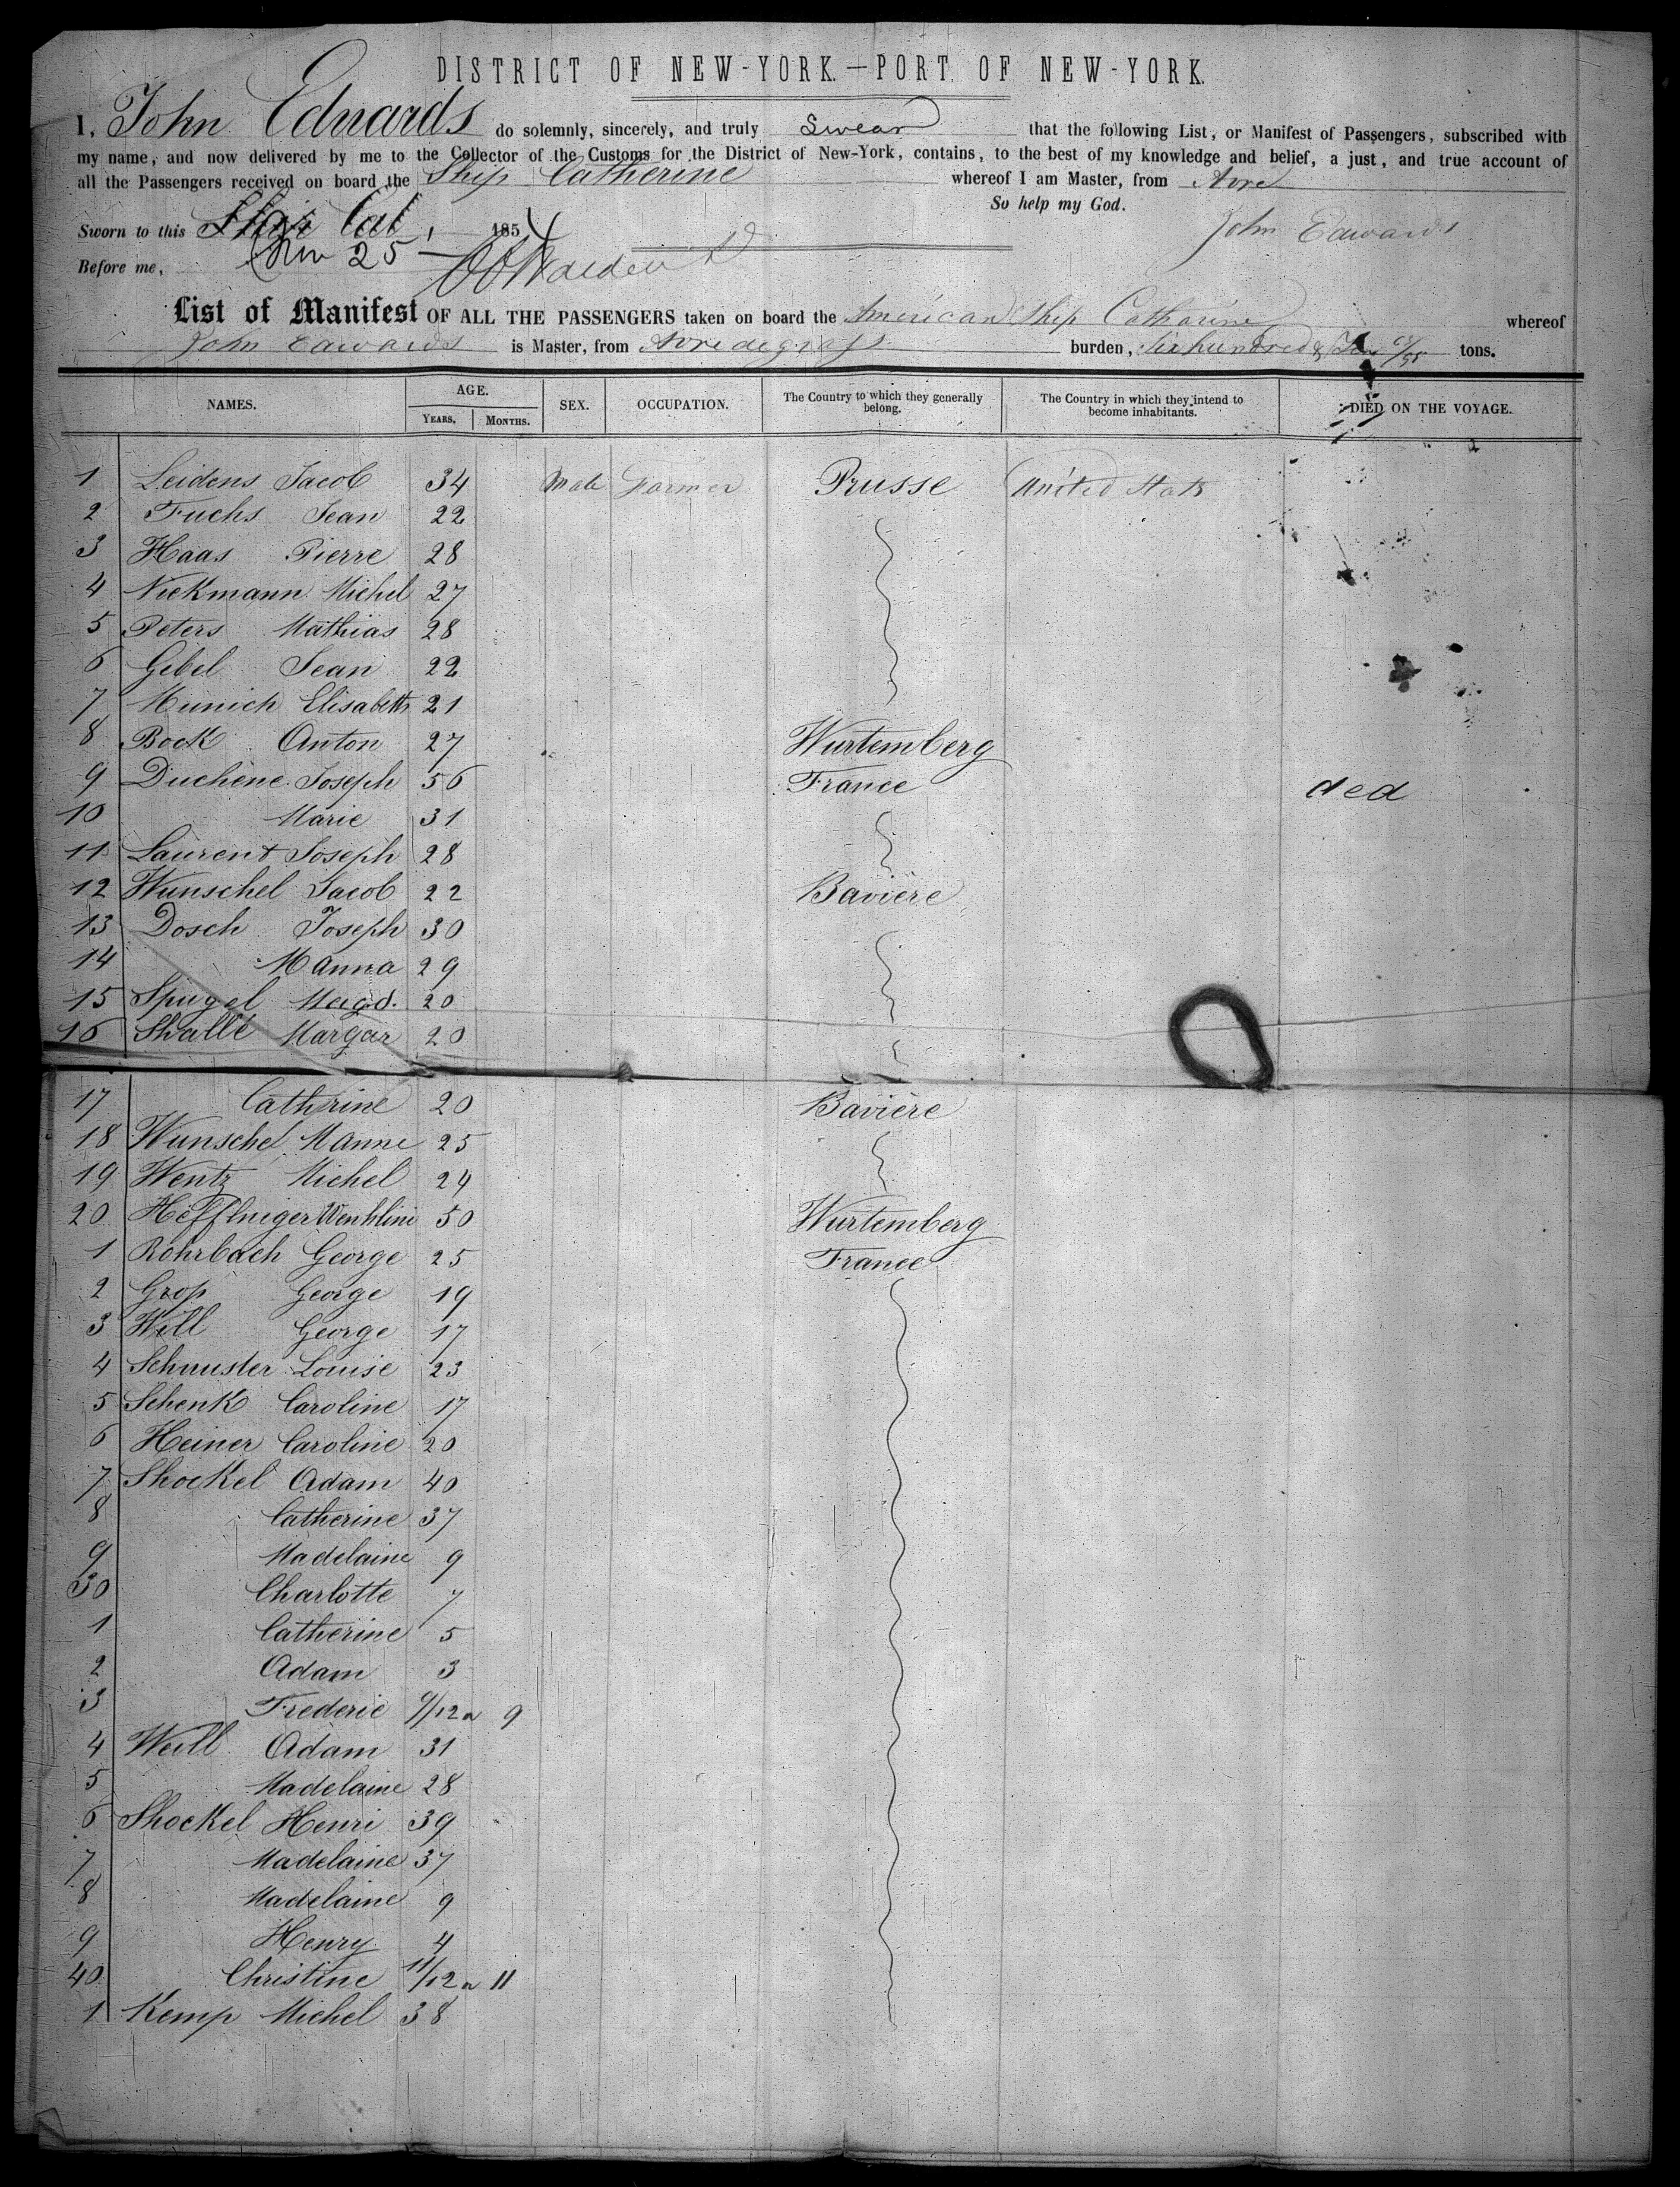 DISTRICT OF NEW-YORK.—PORT OF NEW-YORK.
I, John Edwards do solemnly, sincerely, and truly Swear that the following List, or Manifest of Passengers, subscribed with
my name, and now delivered by me to the Collector of the Customs for the District of New-York, contains, to the best of my knowledge and belief, a just, and true account of
all the Passengers received on board the Ship Catherine whereof I am Master, from Avre
So help my God.
Sworn to this 1854 John Edwards
Before me, Nov 25
List of Manifest OF ALL THE PASSENGERS taken on board the American Ship Catharine whereof
John Edwards is Master, from Avre de grass burden, Six hundred & tons.
NAMES. AGE. YEARS. MONTHS. SEX. OCCUPATION. The Country to which they generally belong. The Country in which they intend to become inhabitants. DIED ON THE VOYAGE.
1 Leidens Jacob 34 Male Farmer Prusse United Stats
2 Fuchs Jean 22
3 Haas Pierre 28
4 Nickmann Michel 27
5 Peters Mathias 28
6 Gebel Jean 22
7 Munich Elisabeth 21
8 Bock Anton 27 Wurtemberg
9 Duchène Joseph 56 France ded
10 Marie 31
11 Laurent Joseph 28
12 Wunschel Jacob 22 Bavière
13 Dosch Joseph 30
14 M anna 29
15 Spugel Magd. 20
16 Shallé Margar 20
17 Catherine 20 Bavière
18 Wunschel M anne 25
19 Wentz Michel 24
20 Hefflinger 50 Wurtemberg
1 Rohrbach George 25 France
2 Grop George 19
3 Will George 17
4 Schmuster Louise 23
5 Schenk Caroline 17
6 Heiner Caroline 20
7 Shockel Adam 40
8 Catherine 37
9 Madelaine 9
30 Charlotte 7
1 Catherine 5
2 Adam 3
3 Frederic 9/12 a 9
4 Weill Adam 31
5 Madelaine 28
6 Shockel Henri 39
7 Madelaine 37
8 Madelaine 9
9 Henry 4
40 Christine 11/12 a 11
1 Kemp Michel 38